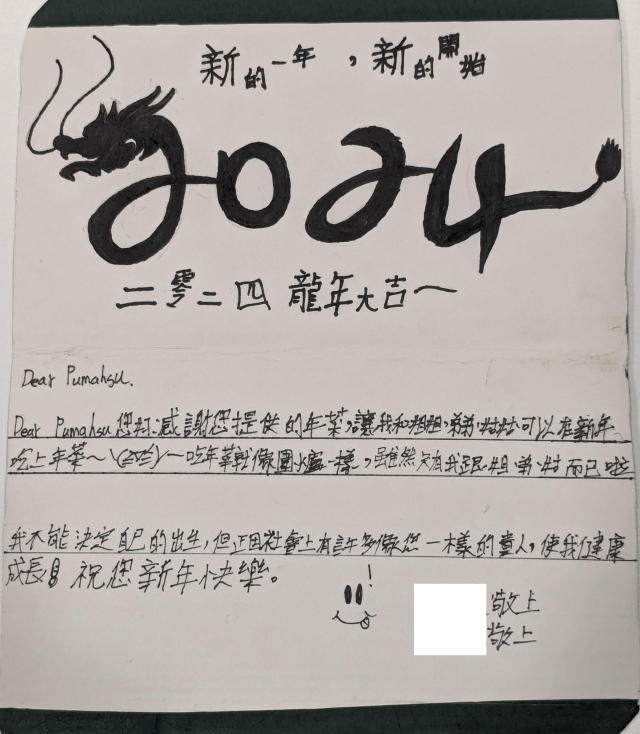 新的一年，新的開始
2024
二零二四 龍年大吉～
Dear Pumahsu.
Dear Pumahsu您好感謝您提供的年菜,讓我和姐姐,弟弟,妹妹可以在新年
吃上年菜～\(≧∇≦)/一吃年菜就像圍爐一樣,雖然只有我跟姐,弟,妹而已啦
我不能決定自己的出生,但正因社會上有許多像您一樣的貴人,使我們健康
成長!祝您新年快樂。
敬上
敬上